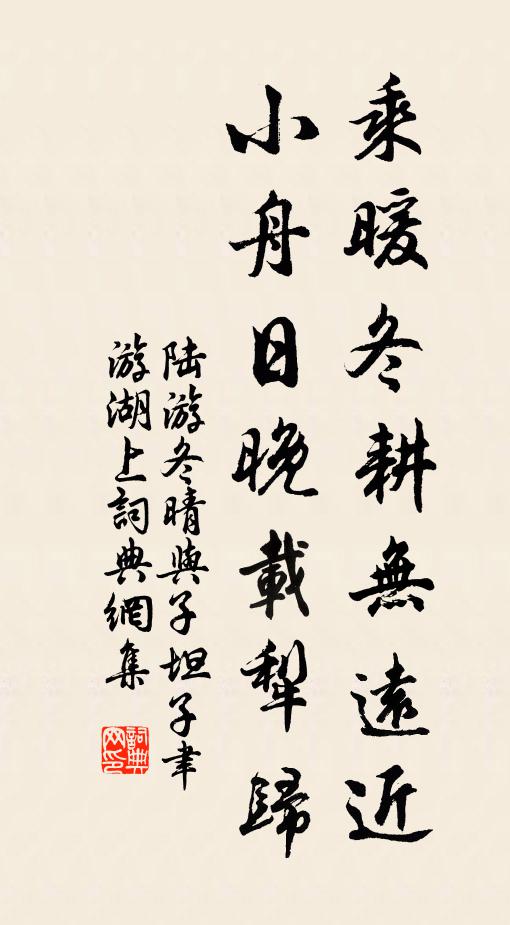 乘暖冬耕無遠近
小舟日晚載犁歸
陆游冬晴與子坦子聿
游湖上詞典網集
詞典
网印